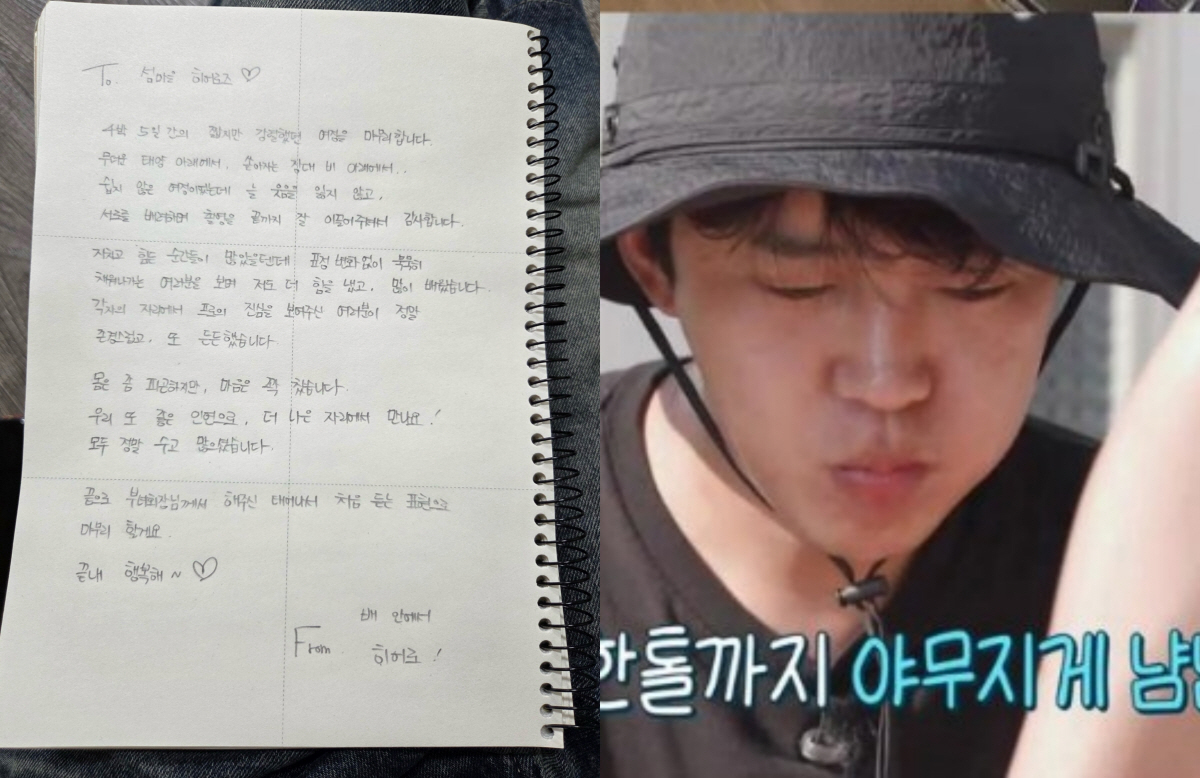 To. 섬마을 히어로즈 ♡
4박 5일 간의 짧지만 강렬했던 여정을 마무리합니다.
무더운 태양 아래에서, 쏟아지는 장대 비 아래에서..
쉽지 않은 여정이었는데 늘 웃음을 잃지 않고,
서로를 배려하며 촬영을 끝까지 잘 이끌어주셔서 감사합니다.
지치고 힘든 순간들이 많았을텐데 표정 변화 없이 묵묵히
채워나가는 여러분을 보며 저도 더 힘을 냈고, 많이 배웠습니다.
각자의 자리에서 프로의 진심을 보여주신 여러분이 정말
존경스럽고, 또 든든했습니다.
몸은 좀 피곤하지만, 마음은 꽉 찼습니다.
우리 또 좋은 인연으로, 더 나은 자리에서 만나요!
모두 정말 수고 많으셨습니다.
끝으로 부녀회장님께서 해주신 태어나서 처음 듣는 표현으로
마무리 할게요.
끝내 행복해~ ♡
배 안에서
From. 히어로!
한톨까지 야무지게 냠